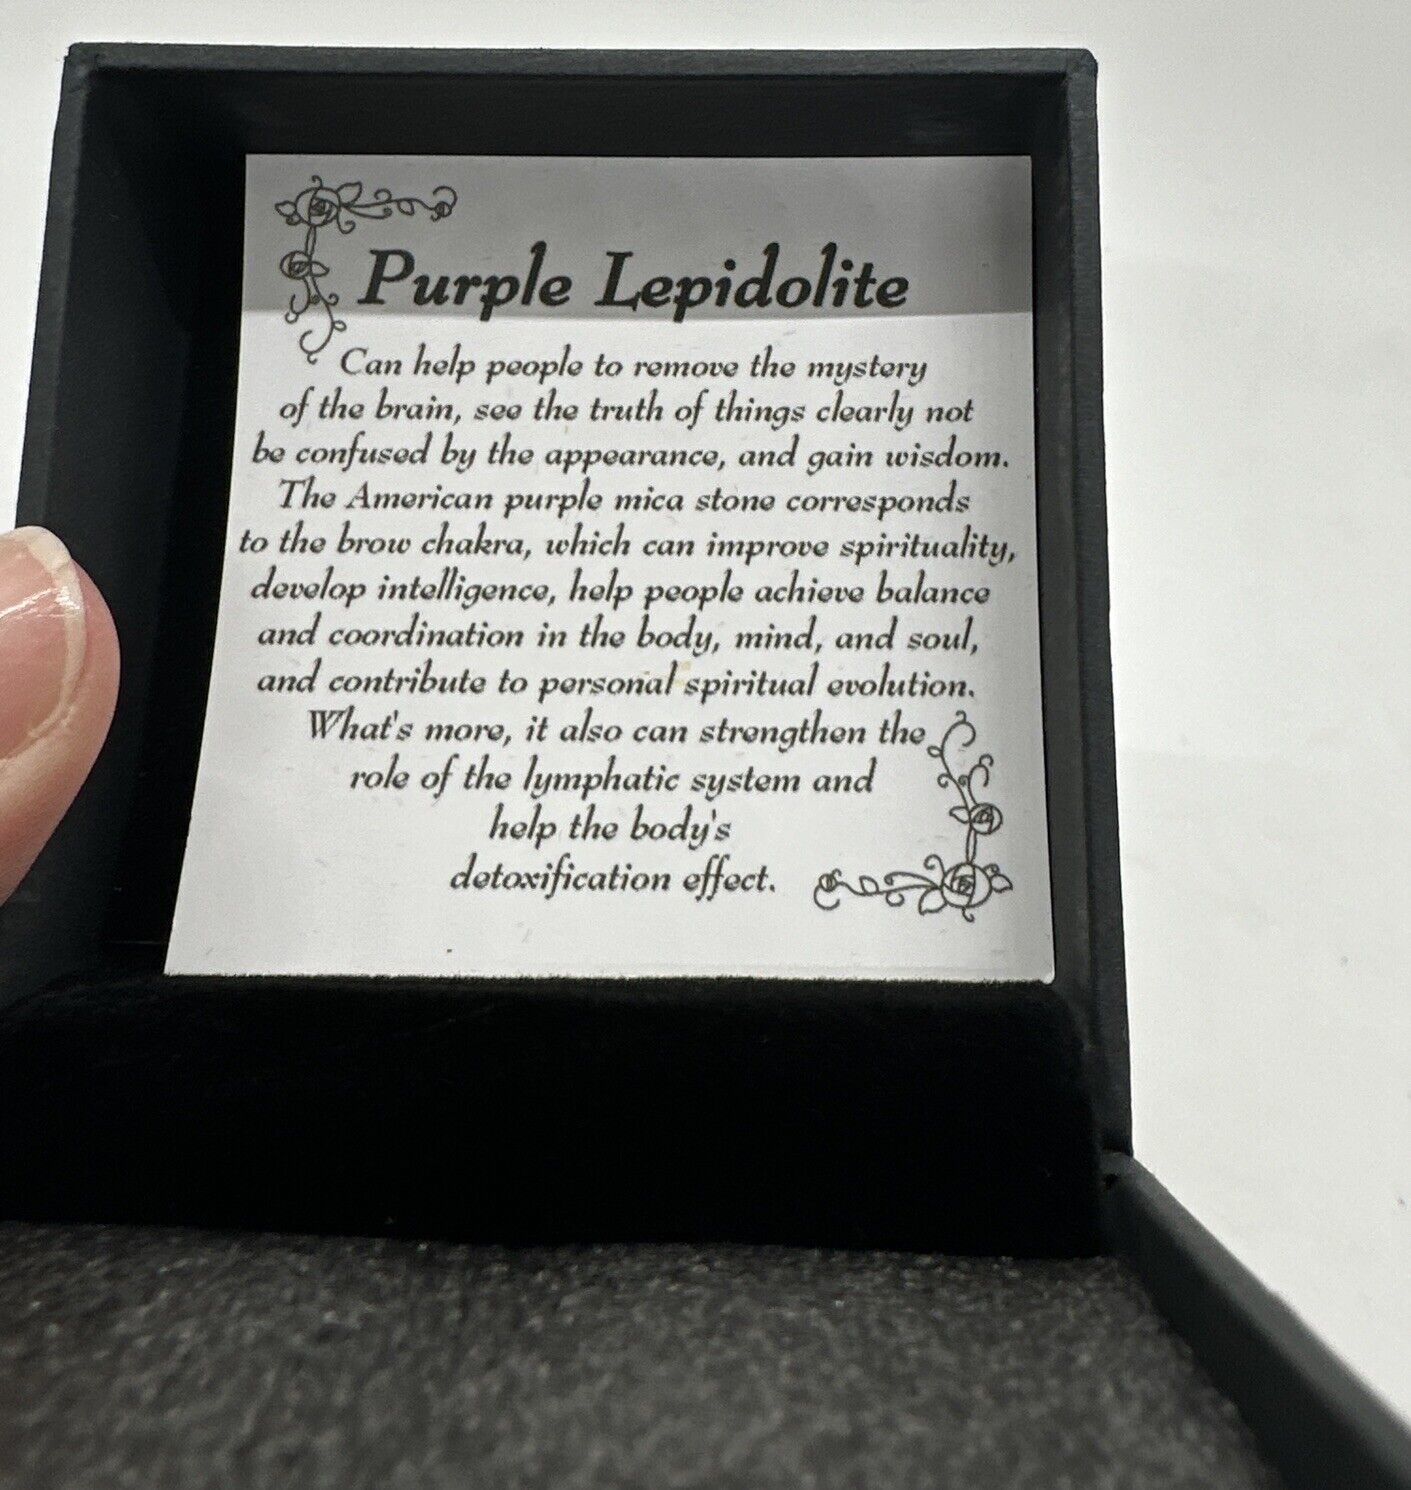 Purple Lepidolite
Can help people to remove the mystery
of the brain, see the truth of things clearly not
be confused by the appearance, and gain wisdom.
The American purple mica stone corresponds
to the brow chakra, which can improve spirituality,
develop intelligence, help people achieve balance
and coordination in the body, mind, and soul,
and contribute to personal spiritual evolution.
What's more, it also can strengthen the
role of the lymphatic system and
help the body's
detoxification effect.